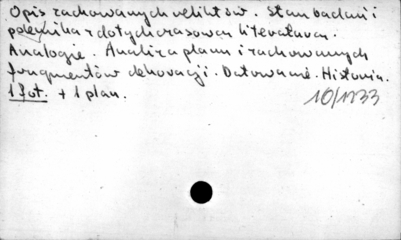 Opis zachowanych reliktów. Stan badań i
polemika z dotychczasową literaturą.
Analogie. Analiza planu i zachowanych
fragmentów dekoracji. Datowanie. Historia.
1 fot. + 1 plan.
10/1233